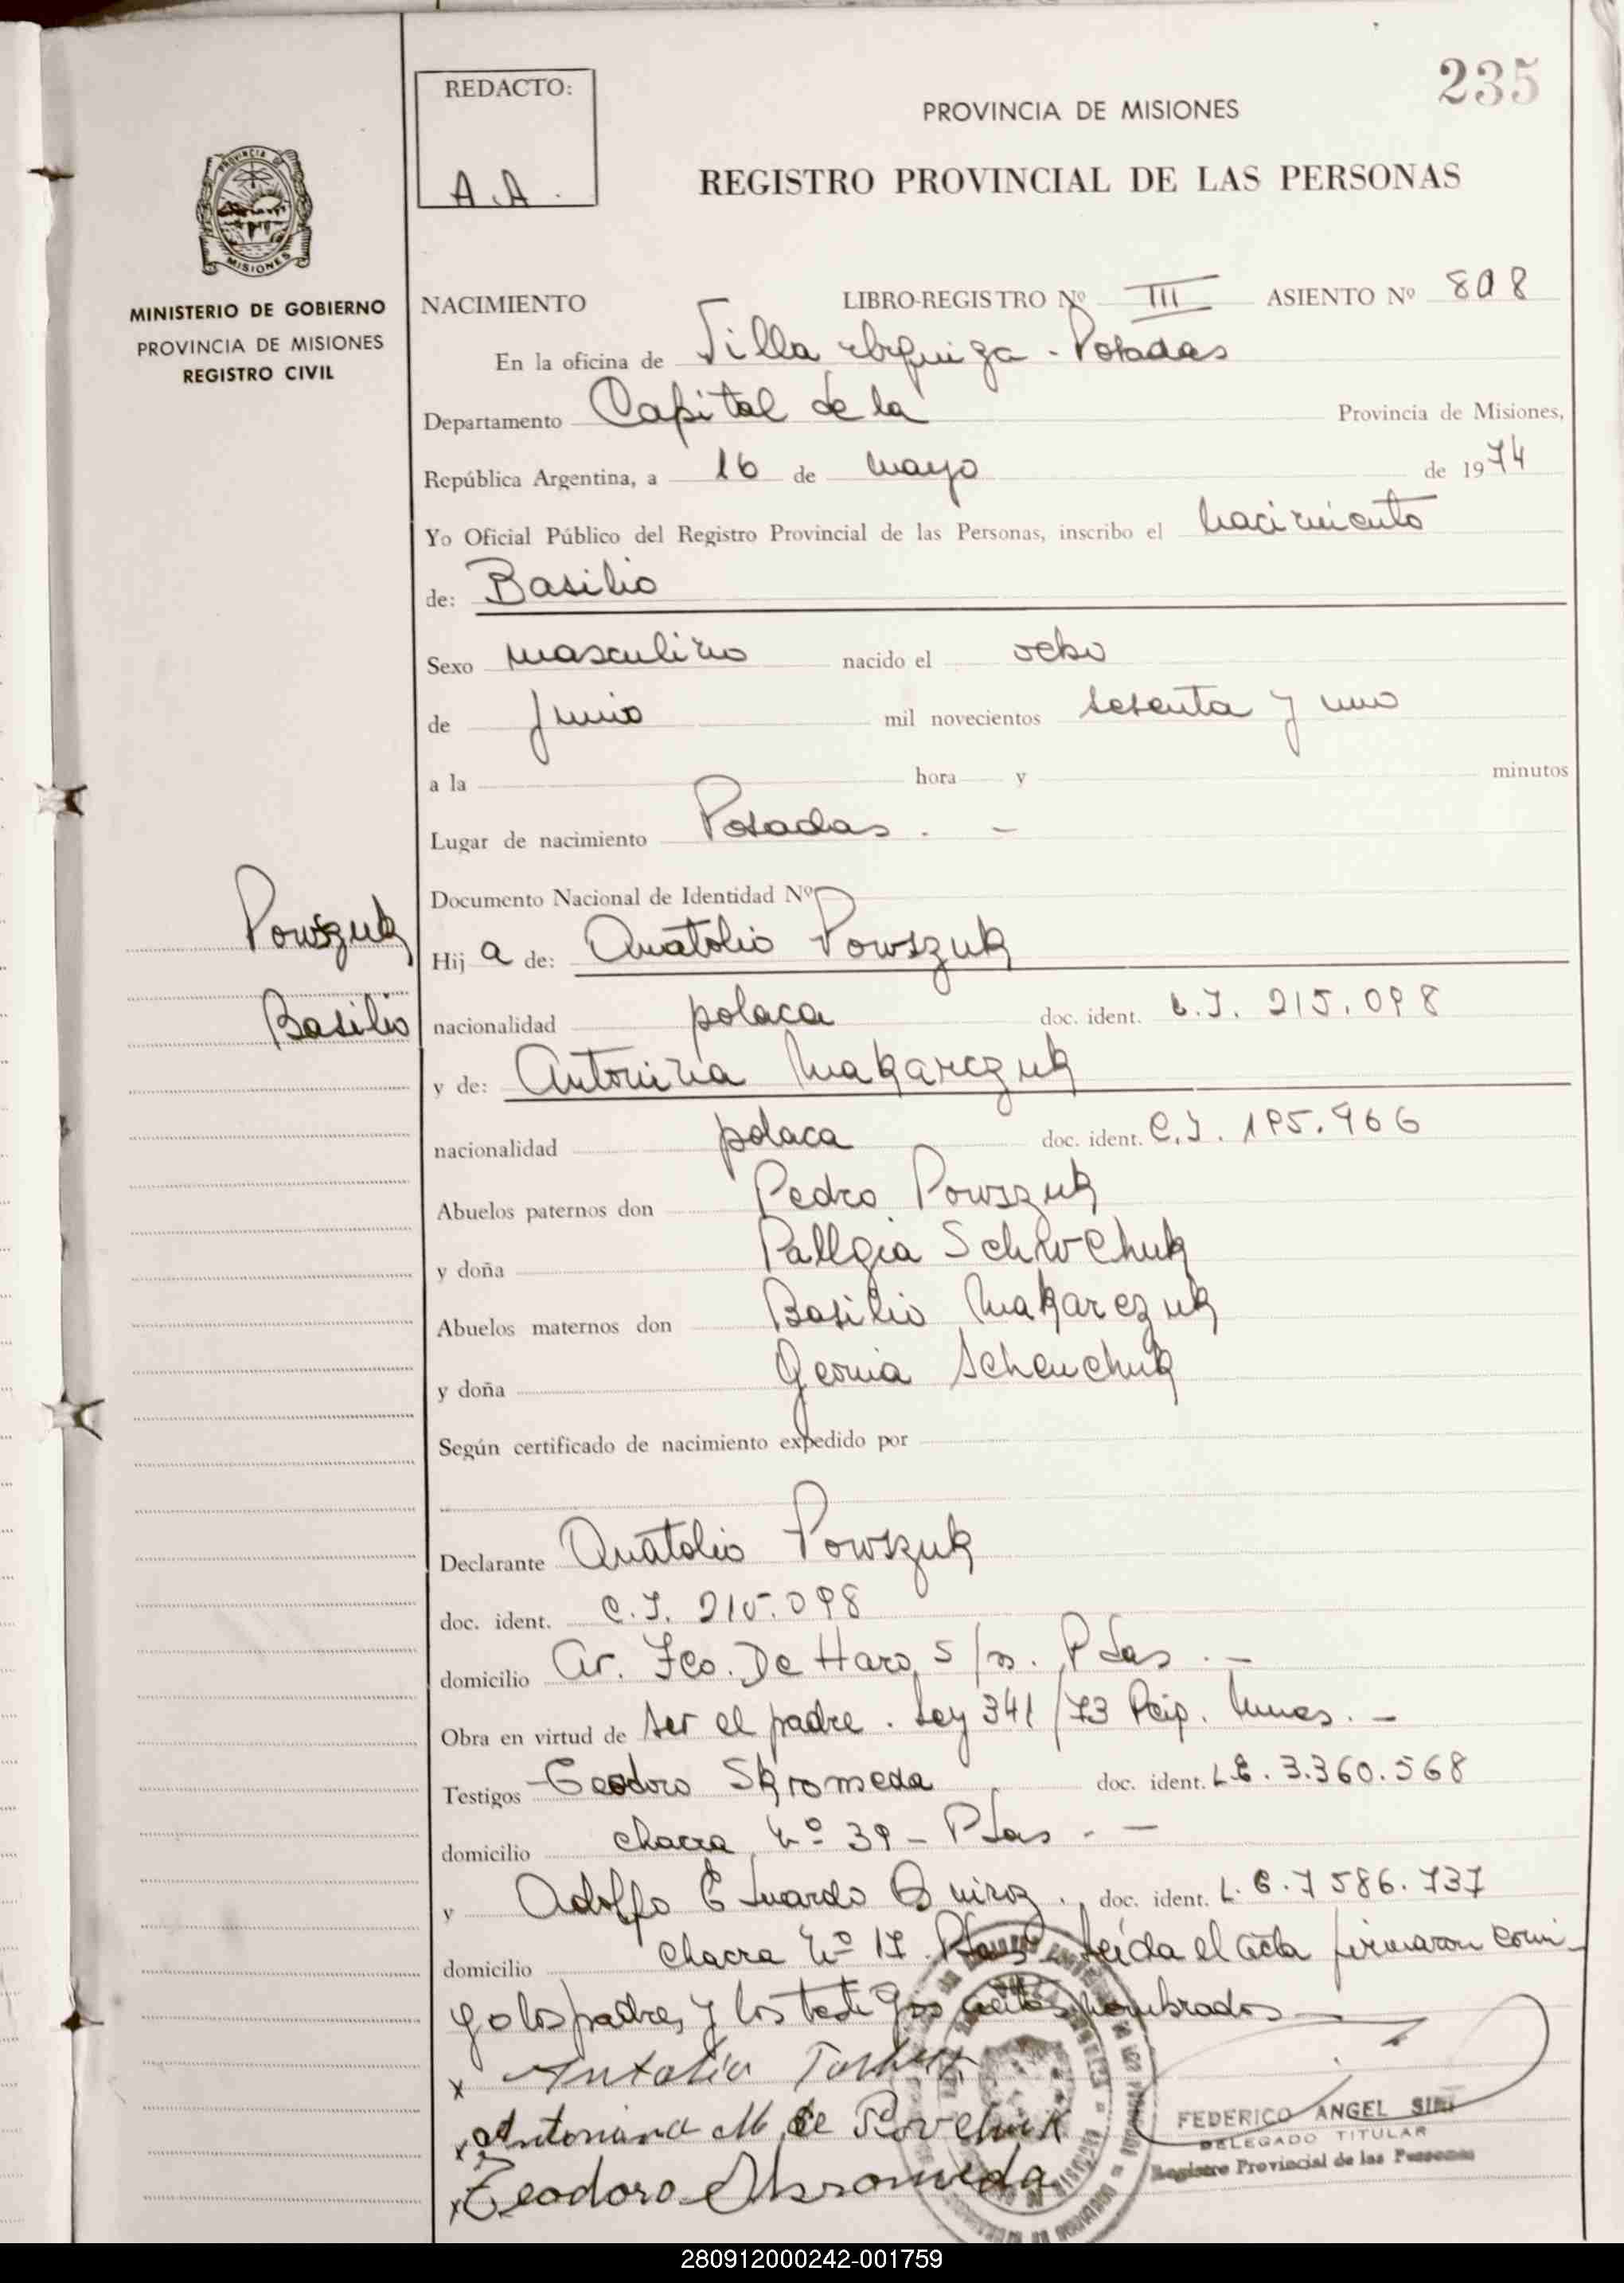 235
REDACTO:
A.A.
PROVINCIA DE MISIONES
REGISTRO PROVINCIAL DE LAS PERSONAS
PROVINCIA DE
MISIONES
MINISTERIO DE GOBIERNO
PROVINCIA DE MISIONES
REGISTRO CIVIL
NACIMIENTO LIBRO-REGISTRO Nº III ASIENTO Nº 808
En la oficina de Villa Urquiza - Posadas
Departamento Capital de la Provincia de Misiones,
República Argentina, a 16 de mayo de 1974
Yo Oficial Público del Registro Provincial de las Personas, inscribo el nacimiento
de: Basilio
Sexo masculino nacido el ocho
de Junio mil novecientos sesenta y uno
a la hora y minutos
Lugar de nacimiento Posadas. -
Documento Nacional de Identidad Nº
Powszuk
Basilio
Hij a de: Anatolio Powszuk
nacionalidad polaca doc. ident. C.I. 215.098
y de: Antonina Makarczuk
nacionalidad polaca doc. ident. C.I. 195.966
Abuelos paternos don Pedro Powszuk
y doña Pallgia Schivchuk
Abuelos maternos don Basilio Makarczuk
y doña Genia Schenchuk
Según certificado de nacimiento expedido por
Declarante Anatolio Powszuk
doc. ident. C.I. 215.098
domicilio Av. Fco. De Haro s/n. Pdas. -
Obra en virtud de ser el padre. Ley 341/73 -
Testigos Teodoro Skromeda doc. ident. L.E. 3.360.568
domicilio chacra Nº 39 - Pdas. -
y Adolfo Eduardo Quiroz., doc. ident. L.E. 7586.737
domicilio chacra Nº 17. Pdas. Leída el acta firmaron conmi-
go los padres y los testigos nombrados
x
x Antonina M de Povchuk
x Teodoro Skromeda
FEDERICO ANGEL SIRI
DELEGADO TITULAR
Registro Provincial de las Personas
280912000242-001759